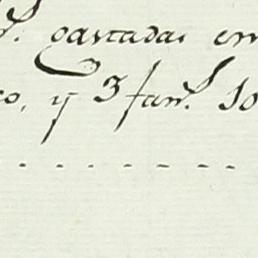 gastadas en
co, y 3 fan.ˢ 10